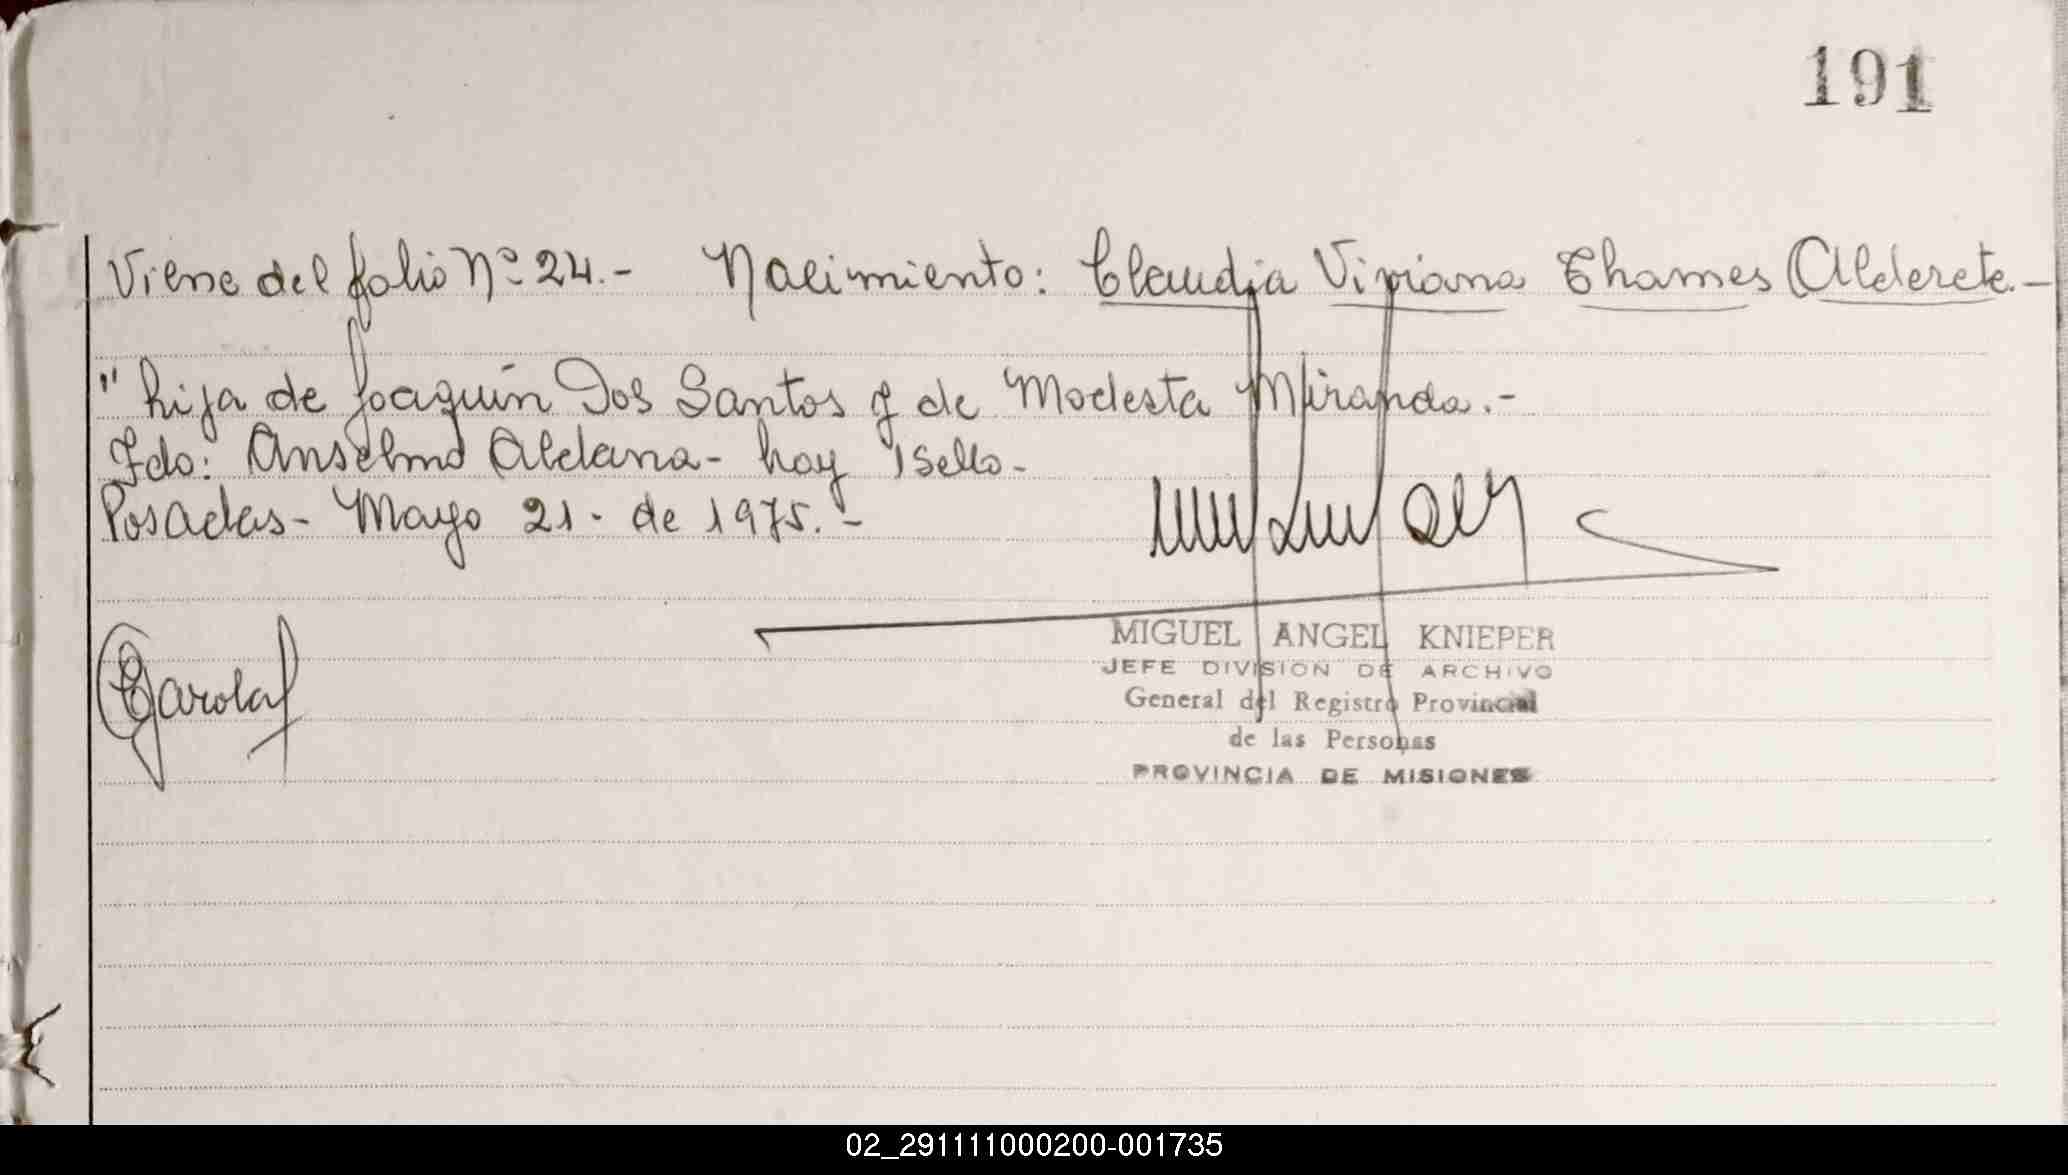 191
Viene del folio Nº 24.- Nacimiento: Claudia Viviana Thames Alderete.-
" hija de Joaquín Dos Santos y de Modesta Miranda.-
Fdo: Anselmo Aldana - hay 1 sello -
Posadas - Mayo 21 - de 1975. -
MIGUEL ANGEL KNIEPER
JEFE DIVISION DE ARCHIVO
General del Registro Provincial
de las Personas
PROVINCIA DE MISIONES
02_291111000200-001735